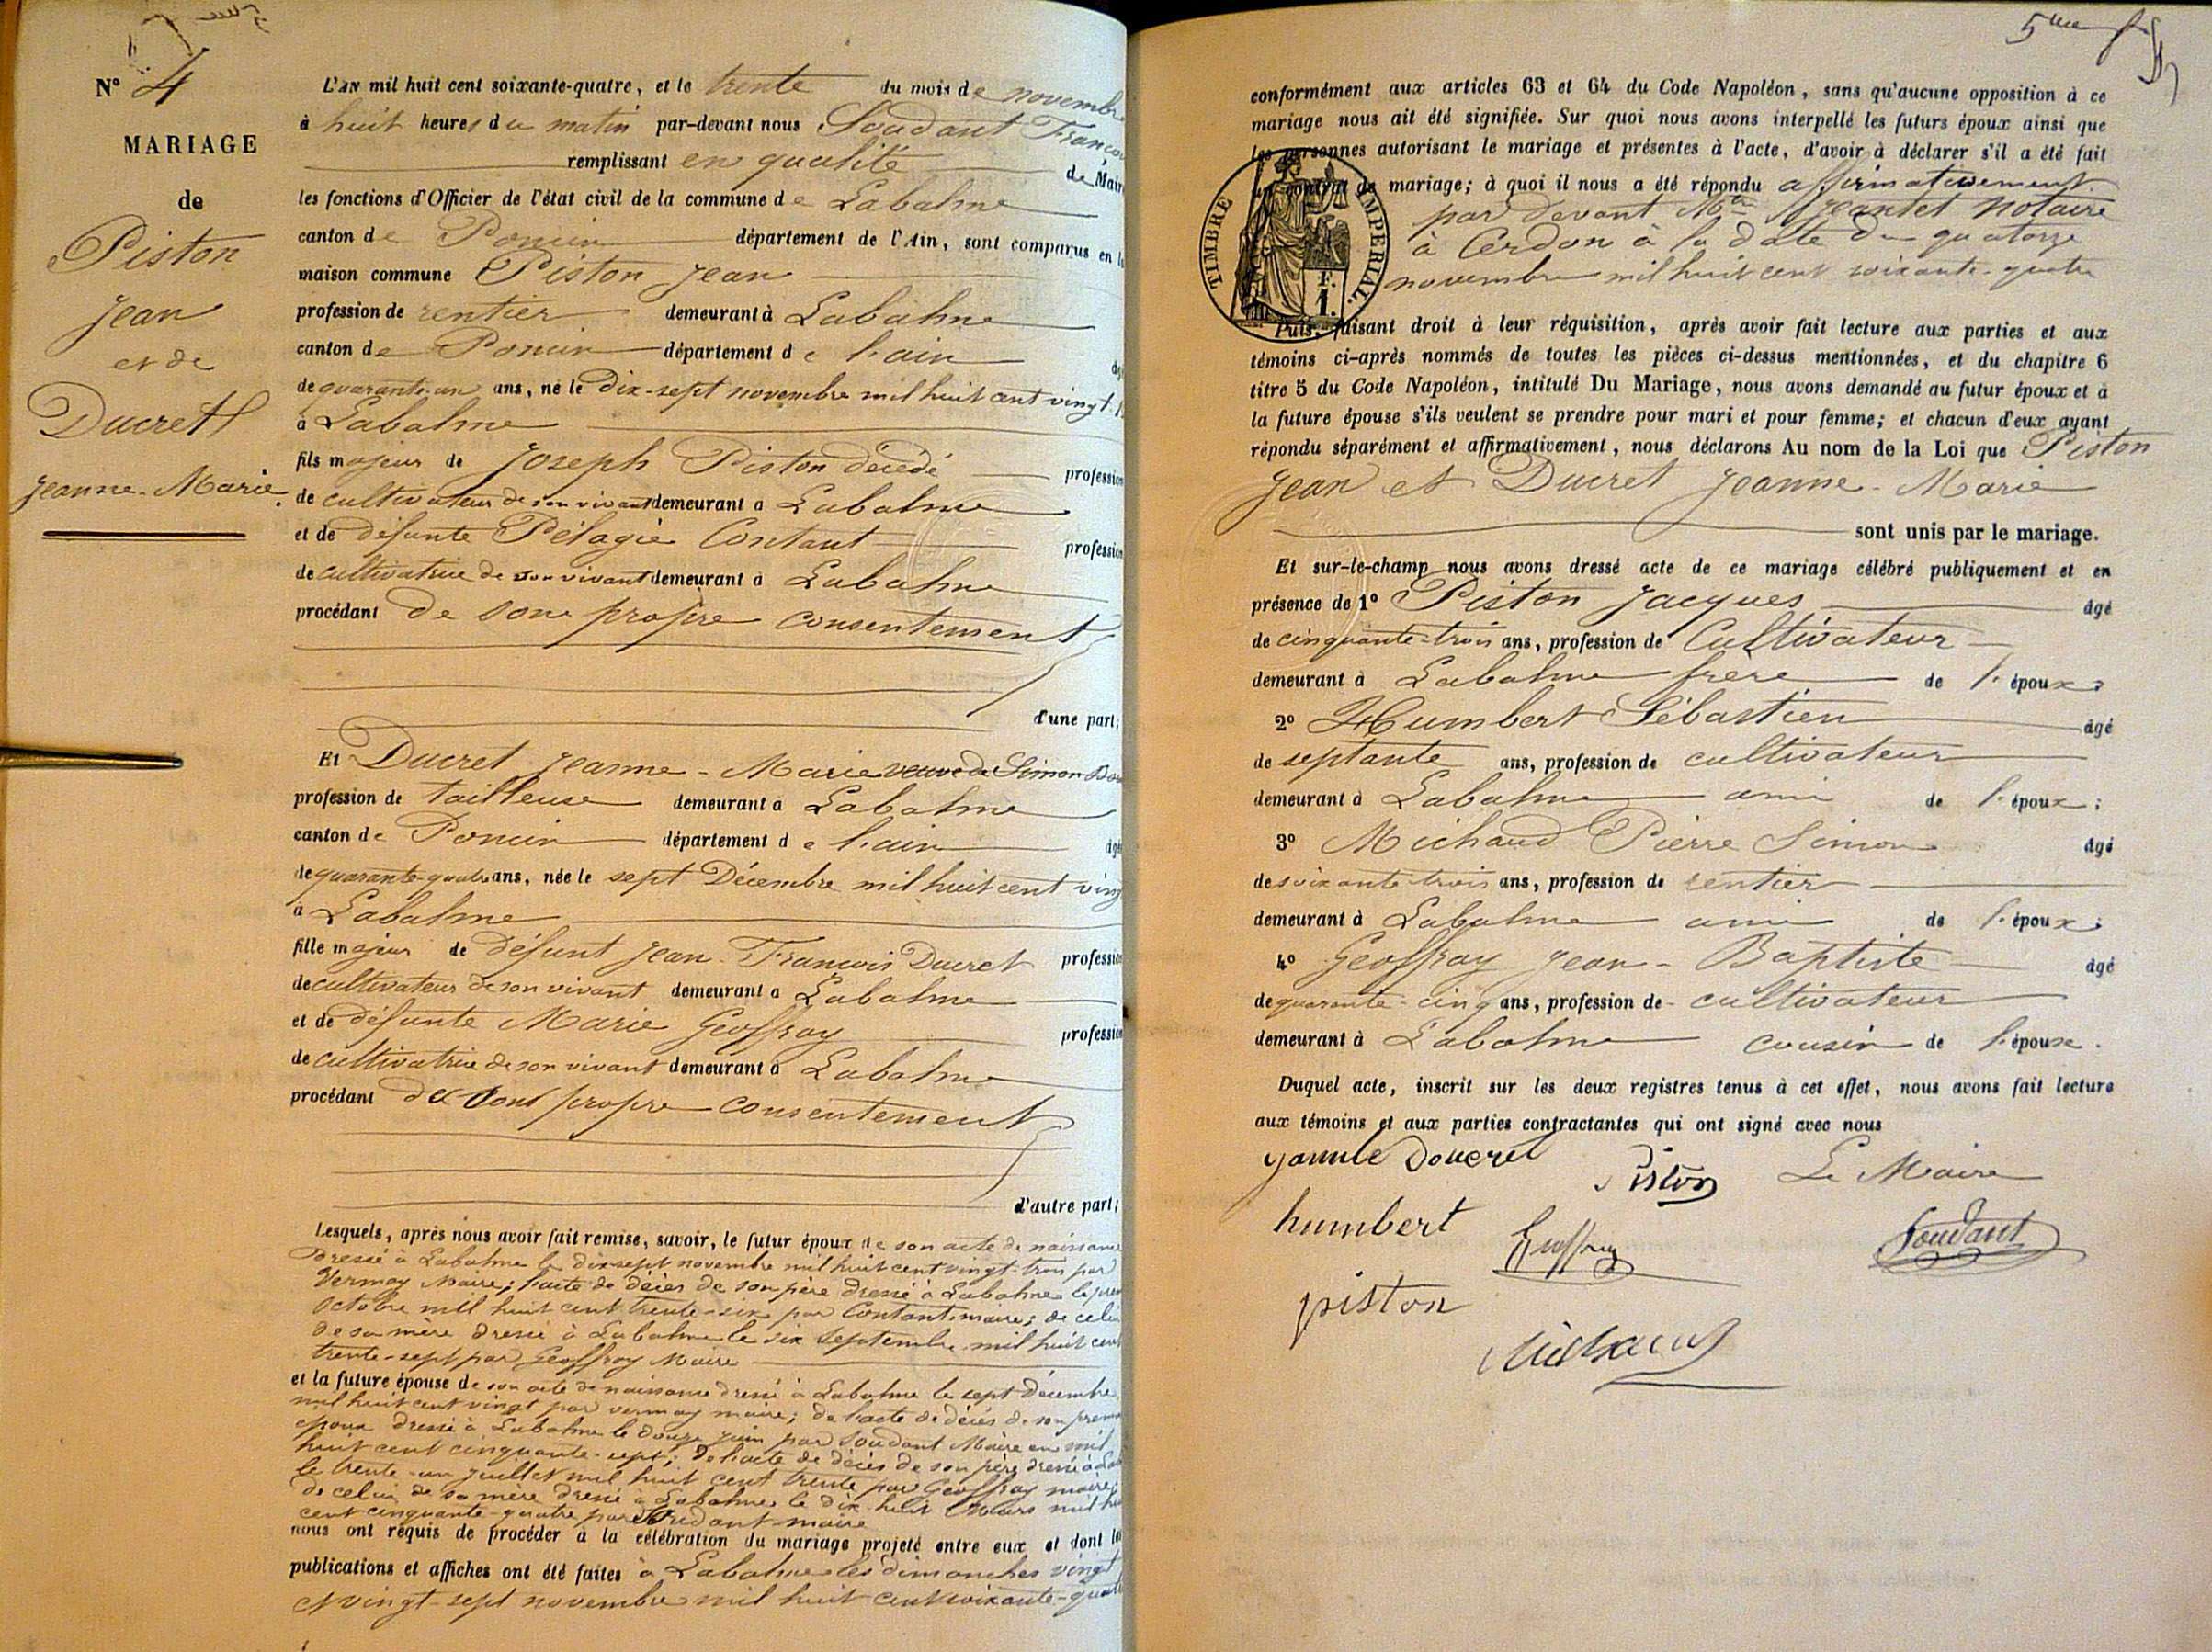 N° 4
MARIAGE
de
Piston
Jean
et de
Ducret
Jeanne-Marie.
L'AN mil huit cent soixante-quatre, et le trente du mois de novembre
à huit heures du matin par-devant nous Soudant François
remplissant en qualité de Maire
les fonctions d'Officier de l'état civil de la commune de Labalme
canton de Poncin département de l'Ain, sont comparus en la
maison commune Piston Jean
profession de rentier demeurant à Labalme
canton de Poncin département de l'ain âgé
de quarante-un ans, né le Dix-sept novembre mil huit cent vingt-
à Labalme
fils majeur de Joseph Piston décédé profession
de cultivateur de son vivant demeurant à Labalme
et de défunte Pélagie Contant profession
de cultivatrice de son vivant demeurant à Labalme
procédant de son propre consentement
d'une part;
Et Ducret Jeanne-Marie veuve de Simon
profession de tailleuse demeurant à Labalme
canton de Poncin département de l'ain âgé
de quarante-quatre ans, née le sept Décembre mil huit cent vingt
à Labalme
fille majeur de défunt Jean-François Ducret profession
de cultivateur de son vivant demeurant à Labalme
et de défunte Marie Geoffray profession
de cultivatrice de son vivant demeurant à Labalme
procédant de son propre consentement
d'autre part;
Lesquels, après nous avoir fait remise, savoir, le futur époux de son acte de naissance
dressé à Labalme le dix-sept novembre mil huit cent vingt-trois par
Vermay Maire; l'acte de décès de son père dressé à Labalme le
Octobre mil huit cent trente-six par Contant maire; de celui
de sa mère dressé à Labalme le six Septembre mil huit cent
trente-sept par Geoffray Maire
et la future épouse de son acte de naissance dressé à Labalme le sept décembre
mil huit cent vingt par vermay maire; de l'acte de décès de son premier
époux dressé à Labalme le douze juin par Soudant Maire en mil
huit cent cinquante-sept; de l'acte de décès de son père dressé à
le trente-un juillet mil huit cent trente par Geoffray maire;
de celui de sa mère dressé à Labalme le dix-huit Mars mil huit
cent cinquante-quatre par Soudant maire
nous ont requis de procéder à la célébration du mariage projeté entre eux et dont les
publications et affiches ont été faites à Labalme les dimanches vingt
et vingt-sept novembre mil huit cent soixante-quatre
5me
conformément aux articles 63 et 64 du Code Napoléon, sans qu'aucune opposition à ce
mariage nous ait été signifiée. Sur quoi nous avons interpellé les futurs époux ainsi que
les personnes autorisant le mariage et présentes à l'acte, d'avoir à déclarer s'il a été fait
un contrat de mariage; à quoi il nous a été répondu affirmativement.
par devant Mtre Jeantet notaire
à Cerdon à la date du quatorze
novembre mil huit cent soixante-quatre
TIMBRE IMPERIAL.
F.
1.
Puis, faisant droit à leur réquisition, après avoir fait lecture aux parties et aux
témoins ci-après nommés de toutes les pièces ci-dessus mentionnées, et du chapitre 6
titre 5 du Code Napoléon, intitulé Du Mariage, nous avons demandé au futur époux et à
la future épouse s'ils veulent se prendre pour mari et pour femme; et chacun d'eux ayant
répondu séparément et affirmativement, nous déclarons Au nom de la Loi que Piston
Jean et Ducret Jeanne-Marie
sont unis par le mariage.
Et sur-le-champ nous avons dressé acte de ce mariage célébré publiquement et en
présence de 1° Piston Jacques âgé
de cinquante-trois ans, profession de Cultivateur
demeurant à Labalme frère de l'époux;
2° Humbert Sébastien âgé
de septante ans, profession de cultivateur
demeurant à Labalme ami de l'époux;
3° Michaud Pierre Simon âgé
de soixante trois ans, profession de rentier
demeurant à Labalme ami de l'époux;
4° Geoffray Jean-Baptiste âgé
de quarante-cinq ans, profession de cultivateur
demeurant à Labalme cousin de l'épouse.
Duquel acte, inscrit sur les deux registres tenus à cet effet, nous avons fait lecture
aux témoins et aux parties contractantes qui ont signé avec nous
Piston Le Maire
humbert Geoffray Soudant
piston
Michaud